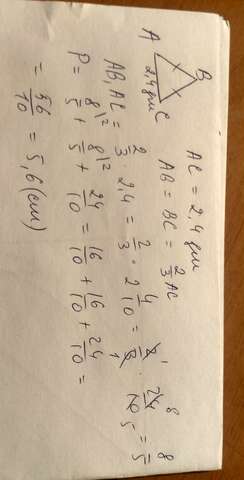 A
B
C
2,4 дм
AC = 2,4 дм
AB = BC = 2/3 AC
AB, AC = 2/3 · 2,4 = 2/3 · 2 4/10 = 2/3 · 24/10 = 8/5
P = 8/5 + 8/5 + 24/10 = 16/10 + 16/10 + 24/10 =
= 56/10 = 5,6 (см)